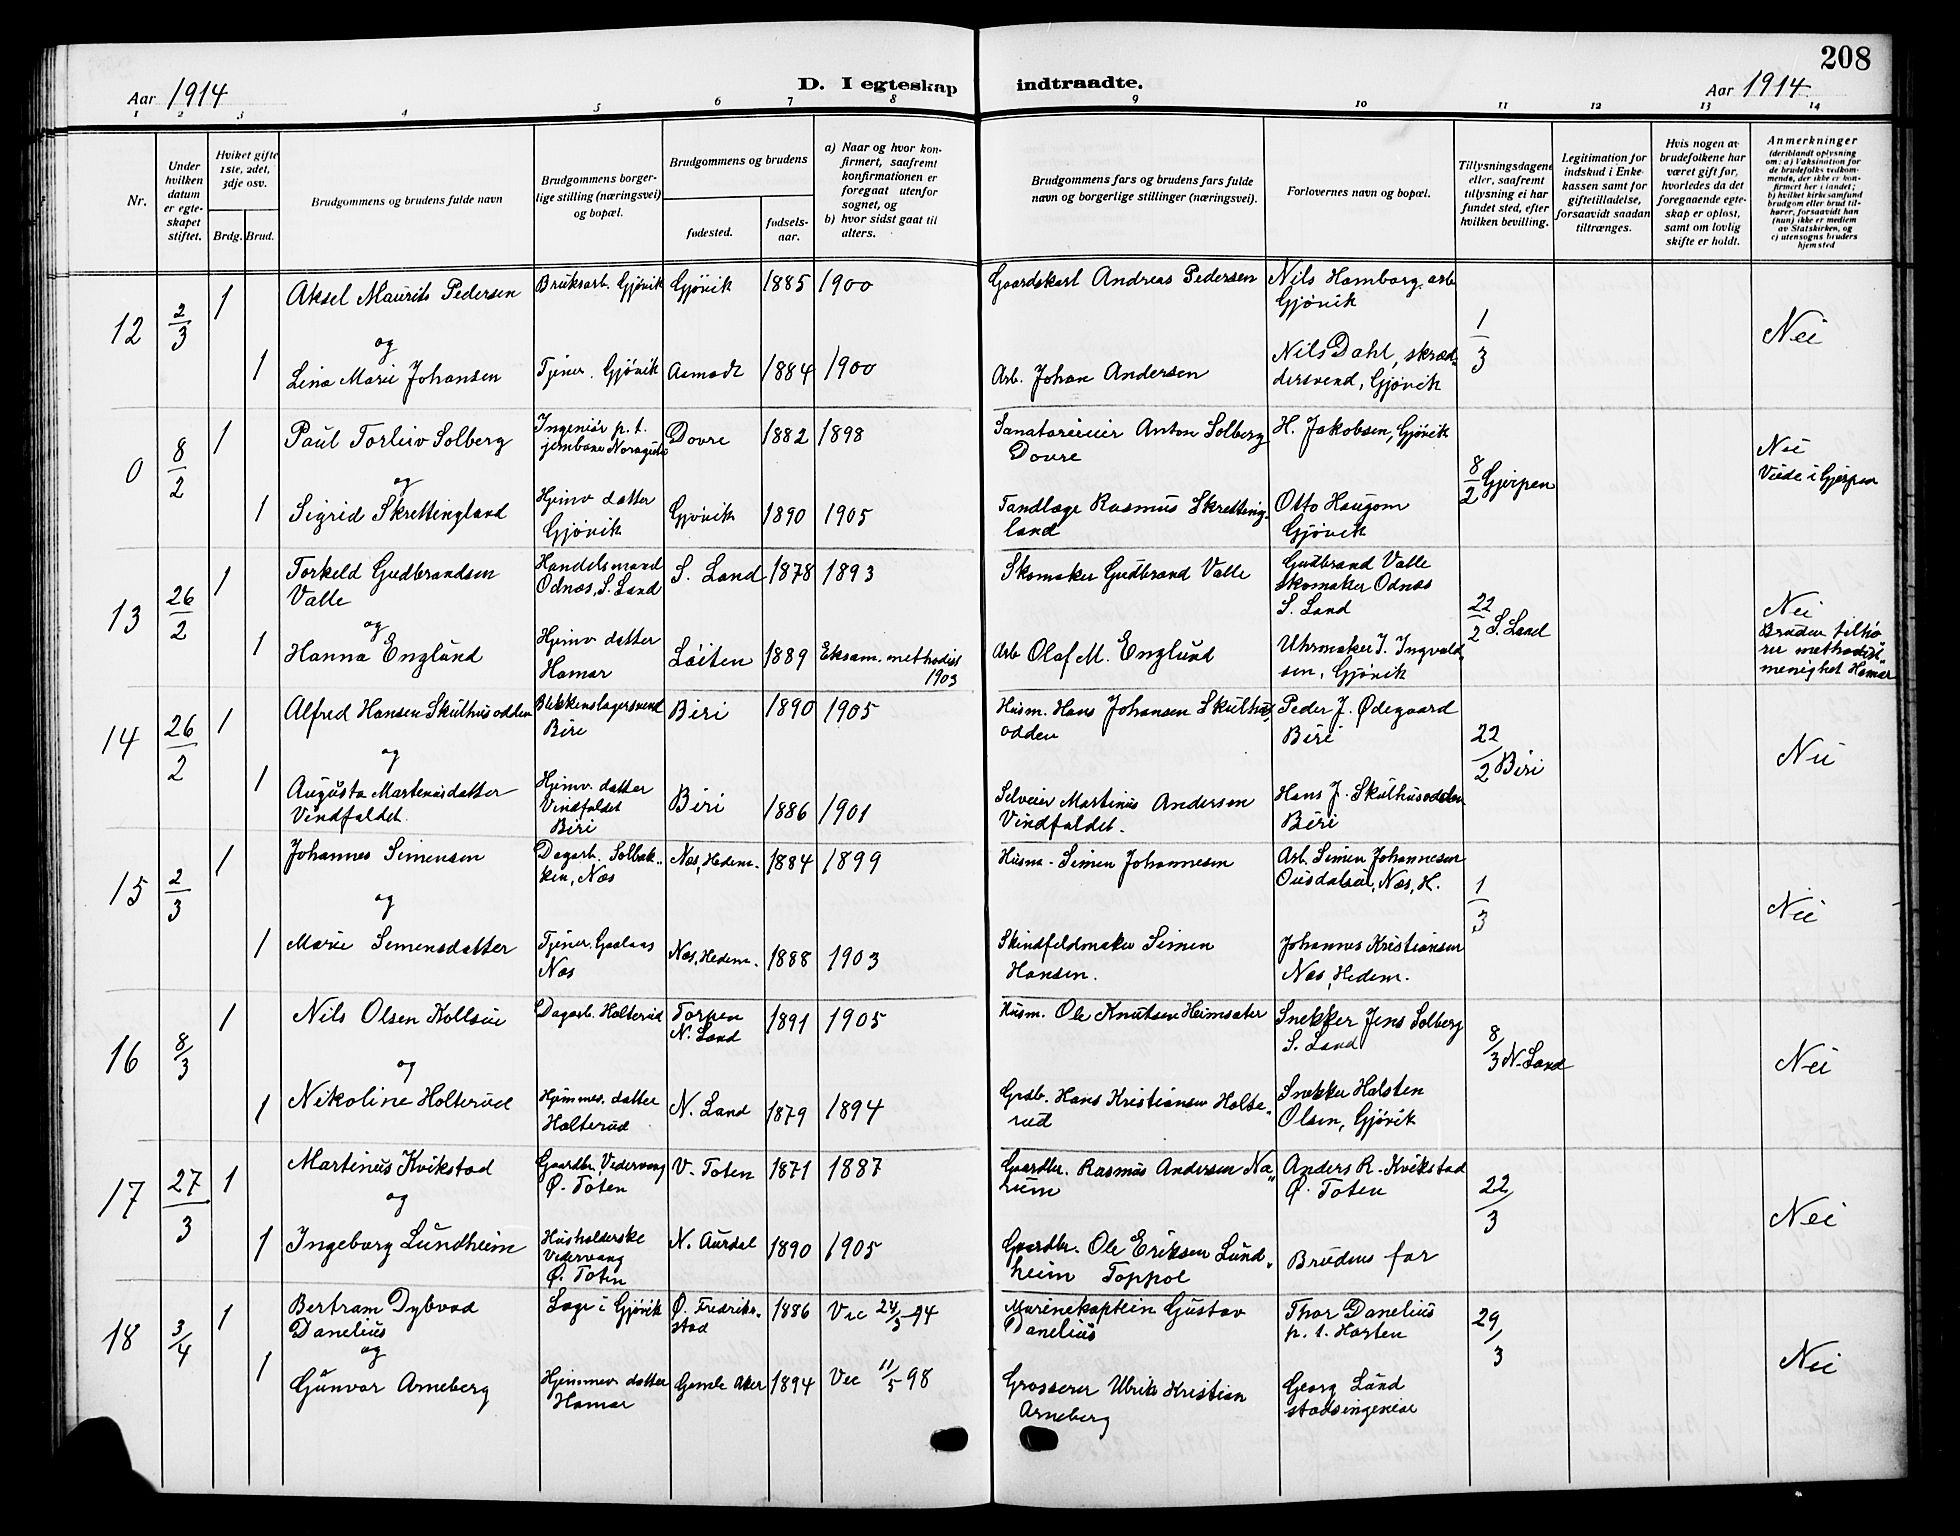 208
Aar 1914
D. I egteskap indtraadte.
Aar 1914.
1 2 3 4 5 6 7 8 9 10 11 12 13 14
Nr.
Under hvilken datum er egteskapet stiftet.
Hviket gifte 1ste, 2det, 3dje osv.
Brdg. Brud.
Brudgommens og brudens fulde navn
Brudgommens borgerlige stilling (næringsvei) og bopæl.
Brudgommens og brudens
fødested.
fødselsaar.
a) Naar og hvor konfirmert, saafremt konfirmationen er foregaat utenfor sognet, og
b) hvor sidst gaat til alters.
Brudgommens fars og brudens fars fulde navn og borgerlige stillinger (næringsvei).
Forlovernes navn og bopæl.
Tillysningsdagene eller, saafremt tillysning ei har fundet sted, efter hvilken bevilling.
Legitimation for indskud i Enkekassen samt for giftetilladelse, forsaavidt saadan tiltrænges.
Hvis nogen av brudefolkene har været gift før, hvorledes da det foregaaende egteskap er opløst, samt om lovlig skifte er holdt.
Anmerkninger
(deriblandt oplysning om: a) Vaksination for de brudefolks vedkommende, der ikke er konfirmert her i landet; b) hvilket kirkesamfund brudgom eller brud tilhører, forsaavidt han (hun) ikke er medlem av Statskirken, og c) utensogns bruders hjemsted
12 2/3 1 Aksel Maurits Pedersen Bruksarb. Gjøvik Gjøvik 1885 1900 Gaardskarl Andreas Pedersen Nils Hamborg. arb Gjøvik 1/3 Nei
og
1 Lina Marie Johansen Tjener. Gjøvik Asmadt 1884 1900 Arb. Johan Andersen Nils Dahl, skræddersvend, Gjøvik
0 8/2 1 Paul Torleiv Solberg Ingeniør p.t. jernbane Dovre 1882 1898 Anton Solberg Dovre H. Jakobsen, Gjøvik 8/2 Gjerpen Nei Viede i Gjerpen
og
1 Sigrid Skrettingland Hjemv datter Gjøvik Gjøvik 1890 1905 Tandlæge Rasmus Skrettingland Otto Haugom Gjøvik
13 26/2 1 Torkeld Gudbrandsen Valle Handelsmand Odnæs, S. Land S. Land 1878 1893 Skomaker Gudbrand Valle Gudbrand Valle Skomaker Odnæs S. Land 22/2 S. Land Nei Bruden tilhører methodistmenighet Hamar
og
1 Hanna Englund Hjemv datter Hamar Løiten 1889 Eksam. methodist 1903 Arb Olaf M. Englund Uhrmaker J. Ingvaldsen, Gjøvik
14 26/2 1 Alfred Hansen Skulhusodden Blikkenslagersvend Biri Biri 1890 1905 Husm. Hans Johansen Skulhusodden Peder J. Ødegaard Biri 22/2 Biri Nei
og
1 Augusta Martinusdatter Vindfaldet. Hjemv. datter Vindfaldet Biri Biri 1886 1901 Selveier Martinus Andersen Vindfaldet. Hans J. Skulhusodden Biri
15 2/3 1 Johannes Simensen Dagarb. Solbakken, Næs Næs, Hedem. 1884 1899 Husm. Simen Johannesen Arb. Simen Johannesen Næs, H. 1/3 Nei
og
1 Marie Simensdatter Tjener. Gaalaas Næs Næs, Hedem. 1888 1903 Skindfeldmaker Simen Hansen. Johannes Kristiansen Næs, Hedem.
16 8/3 1 Nils Olsen Kollsue Dagarb. Holterud Torpen N. Land 1891 1905 Husm. Ole Knutsen Heimsæter Snekker Jens Solberg S. Land 8/3 N. Land Nei
og
1 Nikoline Holterud Hjemmev. datter Holterud N. Land 1879 1894 Grdbr. Hans Kristiansen Holterud Snekker Halsten Olsen, Gjøvik
17 27/3 1 Martinus Kvikstad Gaardbr. Vedervang Ø. Toten V. Toten 1871 1887 Gaardbr. Rasmus Andersen Nahum Anders R. Kvikstad Ø. Toten 22/3 Nei
og
1 Ingeborg Lundheim Husholderske Vedervang Ø. Toten N. Aurdal 1890 1905 Gaardbr. Ole Eriksen Lundheim Toppol Brudens far
18 3/4 1 Bertram Dybvad Danelius Læge i Gjøvik Ø. Fredrikstad 1886 Vac 24/3 94 Marinekaptein Gustav Danelius Thor Danelius p.t. Horten 29/3 Nei
og
1 Gunvor Arneberg Hjemmev datter Hamar Gamle Aker 1894 Vac 11/5 98 Grosserer Ulrik Kristian Arneberg Georg Lund stadsingeniør